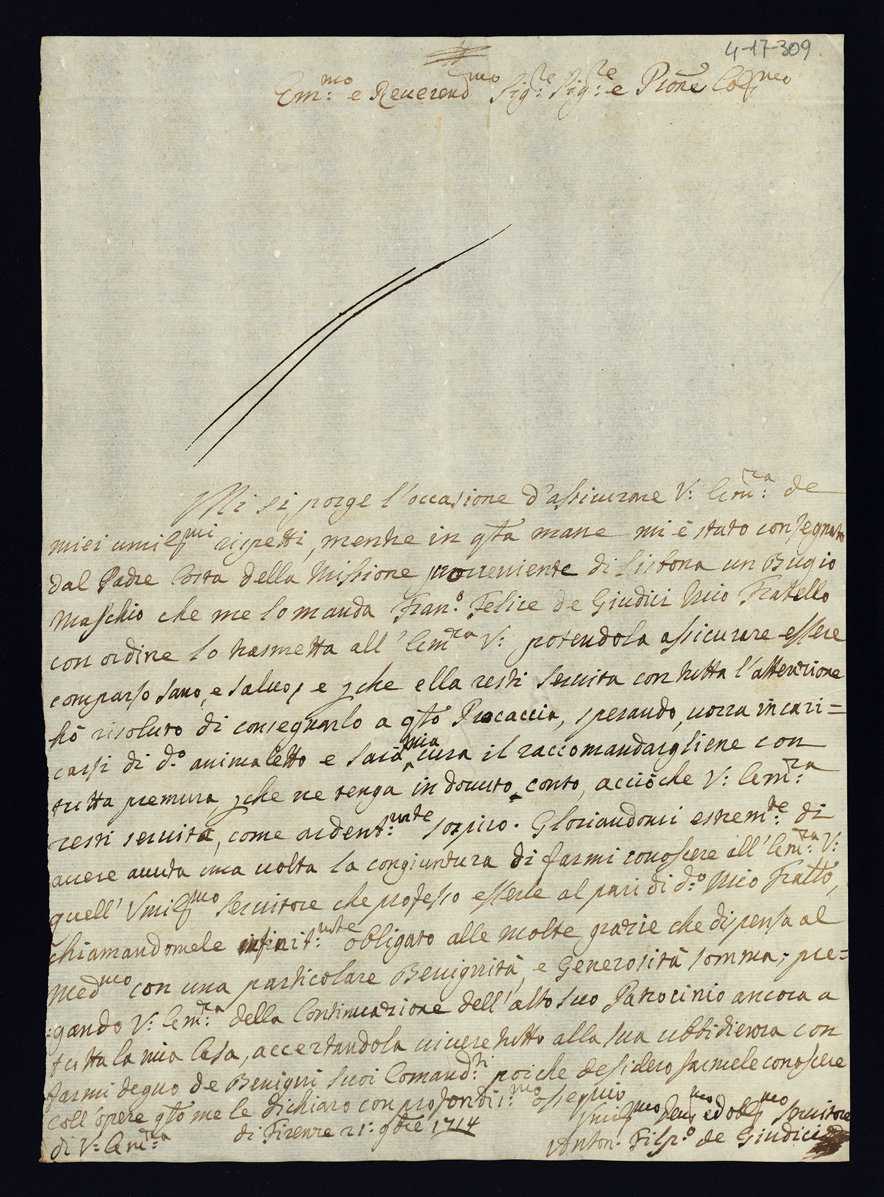 4-17-309
Em:mo e Reuerendmo Sig:re Sig:re e Prone Colmo
Mi si porge l'occasione d'assicurare V: Em:za de
miei umilmi rispetti, mentre in qta mane mi è stato consegnato
dal Padre Costa della Missione proueniente di Lisbona un Bugio
Maschio che me lo manda Fran:o Felice de Giudici Mio Fratello
con ordine lo trasmetta all'Emza V: potendola assicurare essere
comparso sano, e saluo, e pche ella resti seruita con tutta l'attenzione
hò risoluto di consegnarlo a qto Procaccia, sperando, uorrà incari=
carsi di d:o animaletto e sarà mia cura il raccomandargliene con
tutta premura pche ne tenga in douuto conto, acciòche V: Em:za
resti seruita, come ardent:mte sospiro. Gloriandomi estrem:te di
auere auuta una uolta la congiuntura di farmi conoscere all'Em:za V:
quell'Vmilmo Seruitore che professo esserle al pari di d:o Mio Fratlo,
chiamandomele infinit:mte obligato alle molte grazie che dispensa al
Medmo con una particolare Benignità, e Generosità somma; pre=
gando V: Em:za della Continuazione dell'alto suo Patrocinio ancora a
tutta la mia Casa, accertandola uiuere tutto alla sua ubbidienza con
farmi degno de Benigni suoi Comand:ti poiche desidero farmele conoscere
coll'opere qto me le dichiaro con profondis:mo ossequio
di V: Em:za di Firenze 21: 9bre 1714 Vmilmo Deumo ed oblmo Seruitore
Anton: Filip:o de Giudici